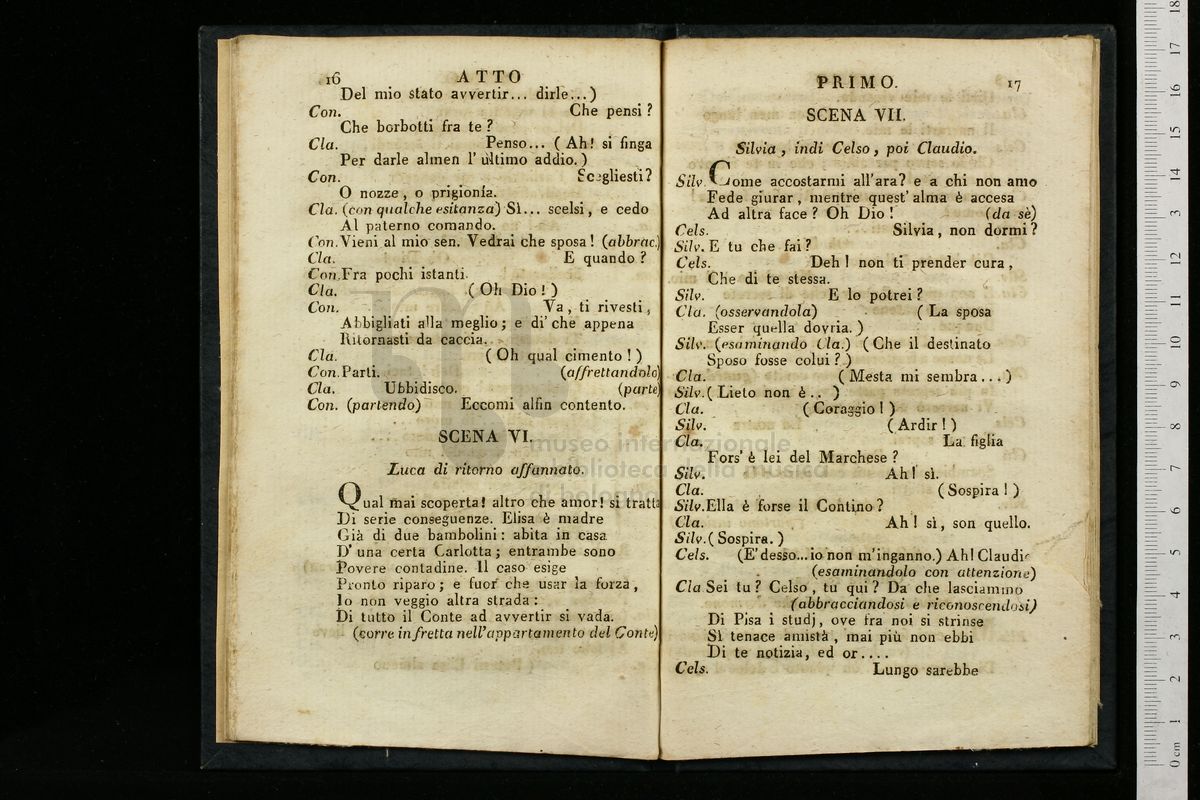 16 ATTO
Del mio stato avvertir... dirle...)
Con. Che pensi?
Che borbotti fra te?
Cla. Penso... (Ah! si finga
Per darle almen l'ultimo addio.)
Con. Scegliesti?
O nozze, o prigionía.
Cla. (con qualche esitanza) Sì... scelsi, e cedo
Al paterno comando.
Con. Vieni al mio sen. Vedrai che sposa! (abbrac.)
Cla. E quando?
Con. Fra pochi istanti.
Cla. (Oh Dio!)
Con. Va, ti rivesti,
Abbigliati alla meglio; e di' che appena
Ritornasti da caccia.
Cla. (Oh qual cimento!)
Con. Parti. (affrettandolo)
Cla. Ubbidisco. (parte)
Con. (partendo) Eccomi alfin contento.
SCENA VI.
Luca di ritorno affannato.
Qual mai scoperta! altro che amor! si tratta
Di serie conseguenze. Elisa è madre
Già di due bambolini: abita in casa
D'una certa Carlotta; entrambe sono
Povere contadine. Il caso esige
Pronto riparo; e fuor che usar la forza,
Io non veggio altra strada:
Di tutto il Conte ad avvertir si vada.
(corre in fretta nell'appartamento del Conte)
PRIMO. 17
SCENA VII.
Silvia, indi Celso, poi Claudio.
Silv. Come accostarmi all'ara? e a chi non amo
Fede giurar, mentre quest'alma è accesa
Ad altra face? Oh Dio! (da sè)
Cels. Silvia, non dormi?
Silv. E tu che fai?
Cels. Deh! non ti prender cura,
Che di te stessa.
Silv. E lo potrei?
Cla. (osservandola) (La sposa
Esser quella dovria.)
Silv. (esaminando Cla.) (Che il destinato
Sposo fosse colui?)
Cla. (Mesta mi sembra...)
Silv. (Lieto non è..)
Cla. (Coraggio!)
Silv. (Ardir!)
Cla. La figlia
Fors' è lei del Marchese?
Silv. Ah! sì.
Cla. (Sospira!)
Silv. Ella è forse il Contino?
Cla. Ah! sì, son quello.
Silv. (Sospira.)
Cels. (E' desso... io non m'inganno.) Ah! Claudio
(esaminandolo con attenzione)
Cla Sei tu? Celso, tu qui? Da che lasciammo
(abbracciandosi e riconoscendosi)
Di Pisa i studj, ove fra noi si strinse
Sì tenace amistà, mai più non ebbi
Di te notizia, ed or....
Cels. Lungo sarebbe
museo internazionale
biblioteca della musica
di bologna
0 cm 1 2 3 4 5 6 7 8 9 10 11 12 13 14 15 16 17 18